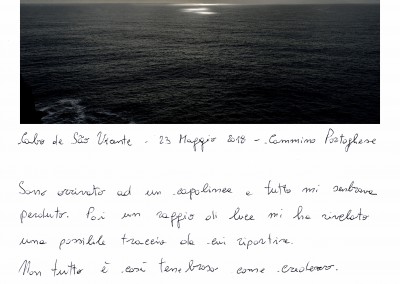 Cabo de São Vicente - 23 Maggio 2018 - Cammino Portoghese
Sono arrivato ad un capolinea e tutto mi sembrava
perduto. Poi un raggio di luce mi ha rivelato
una possibile traccia da cui ripartire.
Non tutto è così tenebroso come credevo.